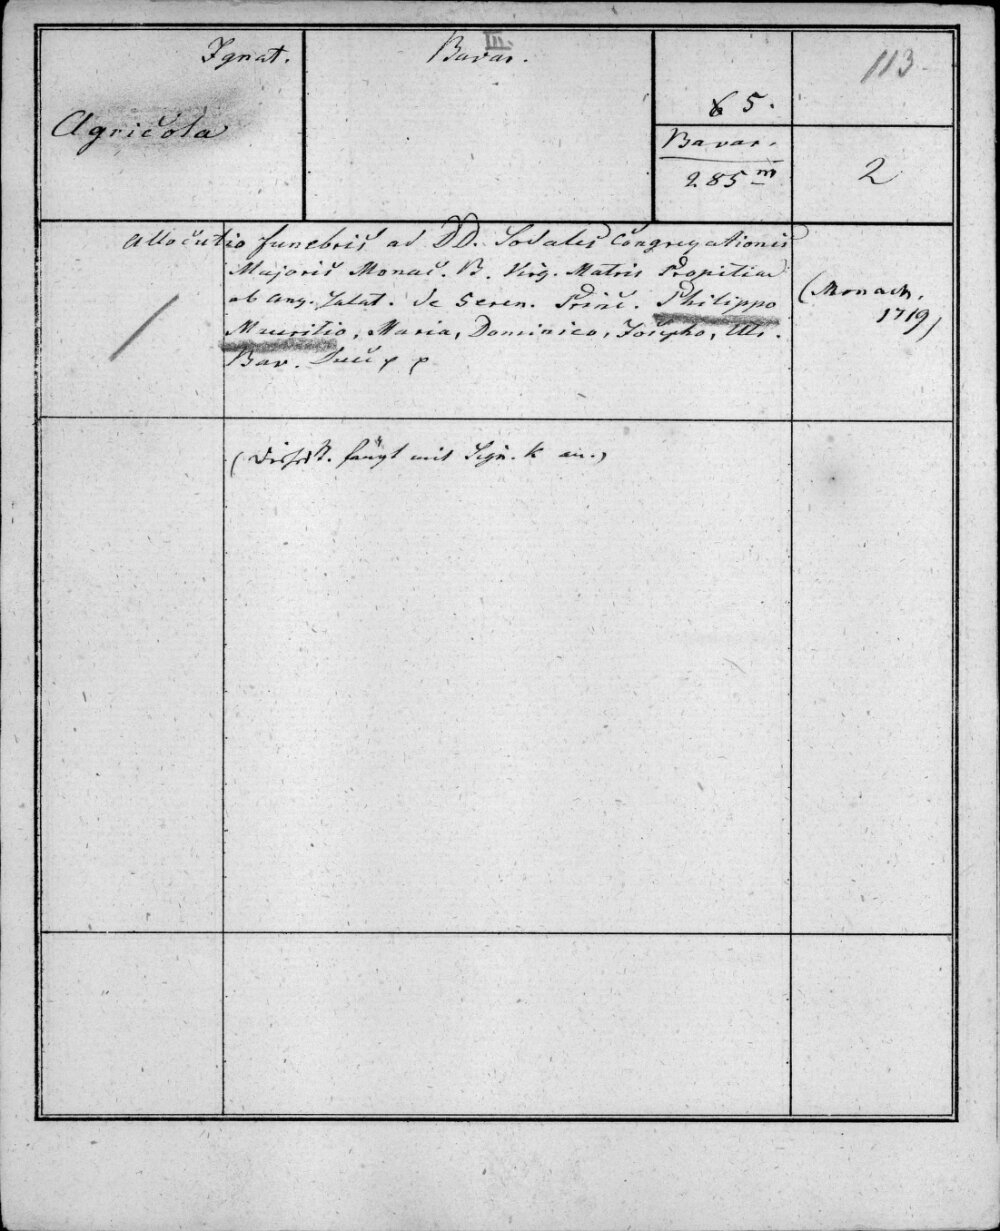 Ignat.
Agricola
III.
Bavar.
5.
Bavar.
285 m
113
2
Allocutio funebris ad DD. Sodales Congregationis
Majoris Monac. B. Virg. Matris Propitiae
ab Ang. Salat. de Seren. Princ. Philippo
Mauritio, Maria, Dominico, Josepho, Utr.
Bav. Duc
(Monach.
1719)
fängt mit Sign. K an.)